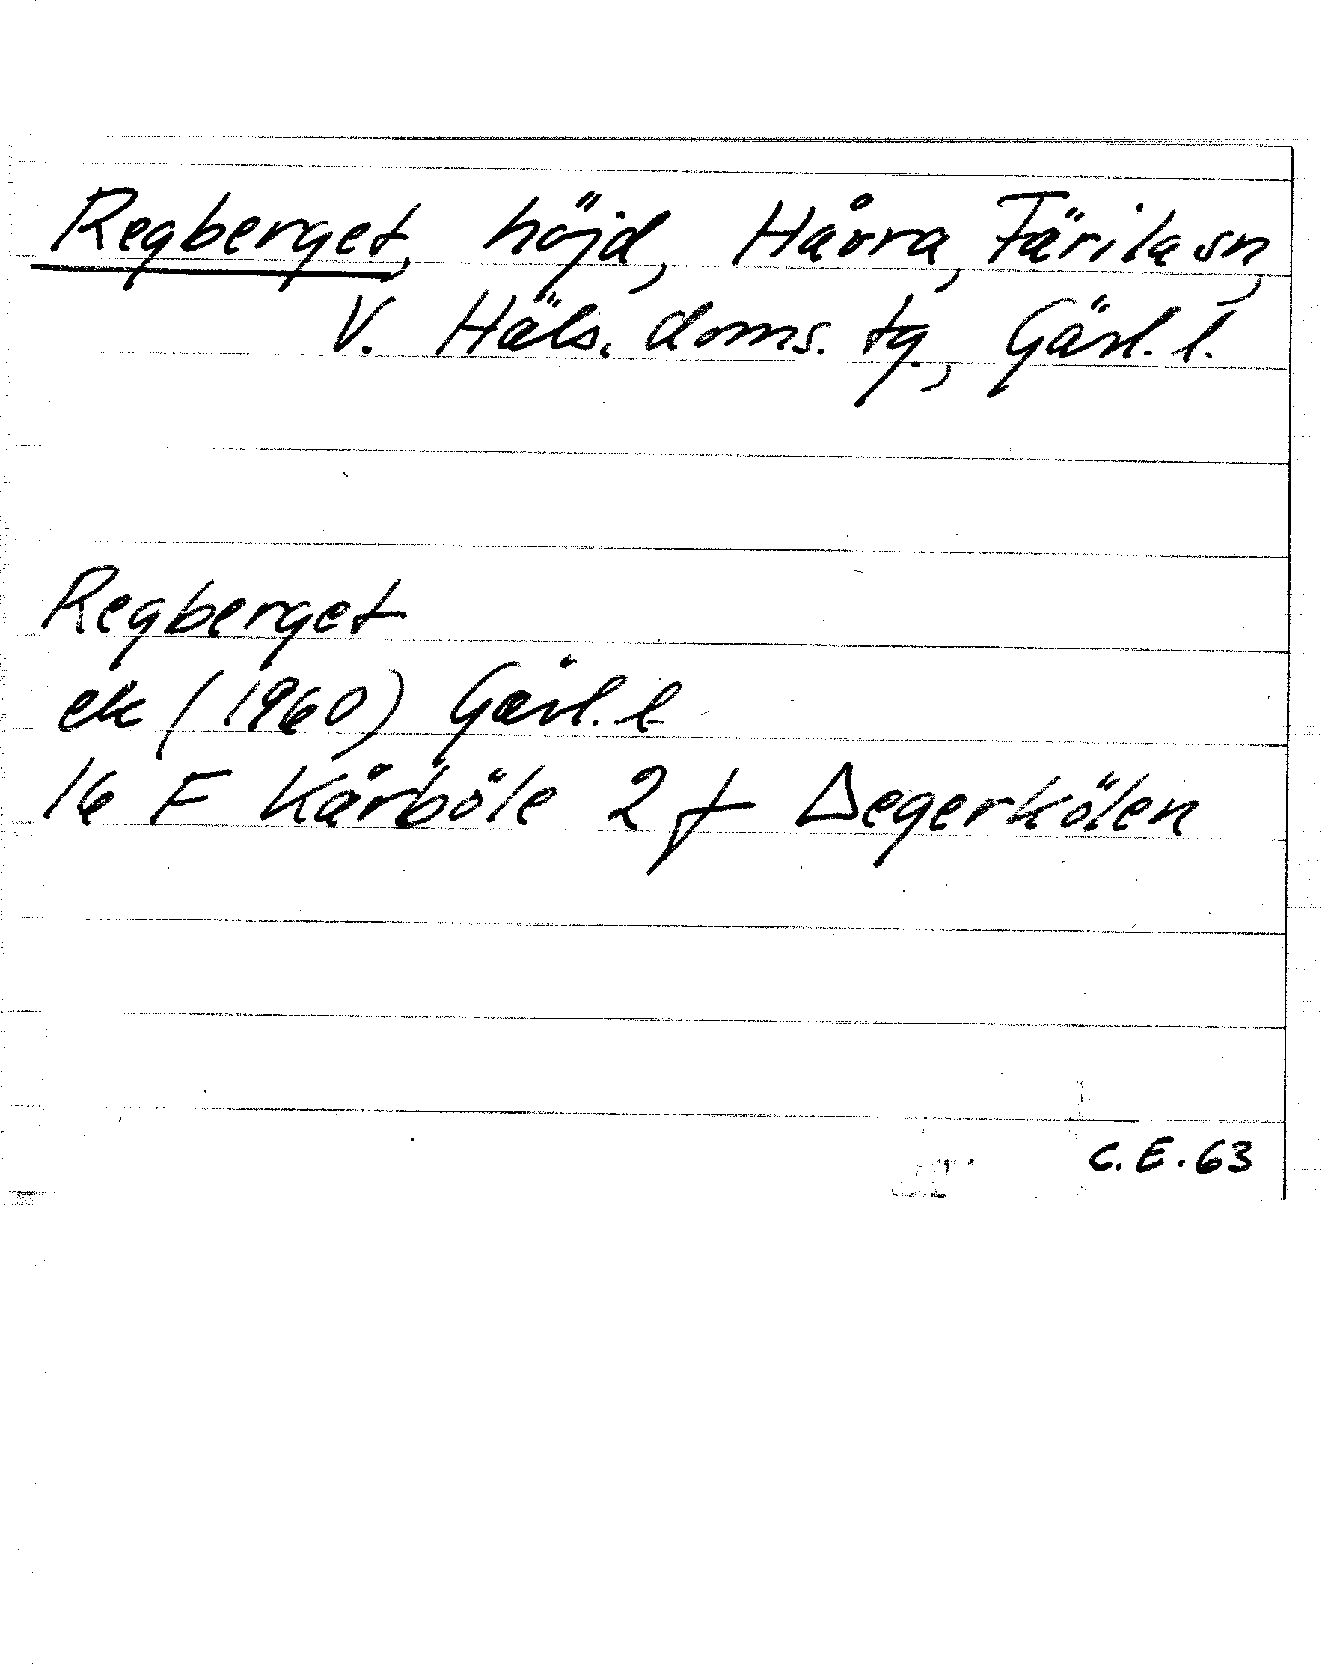 Regberget, höjd, Håvra, Färila sn,
V. Häls. doms. tg., Gävl. l.
Regberget
ek (1960) Gävl. l
16 F Kårböle 2 f Degerkölen
C. E. 63